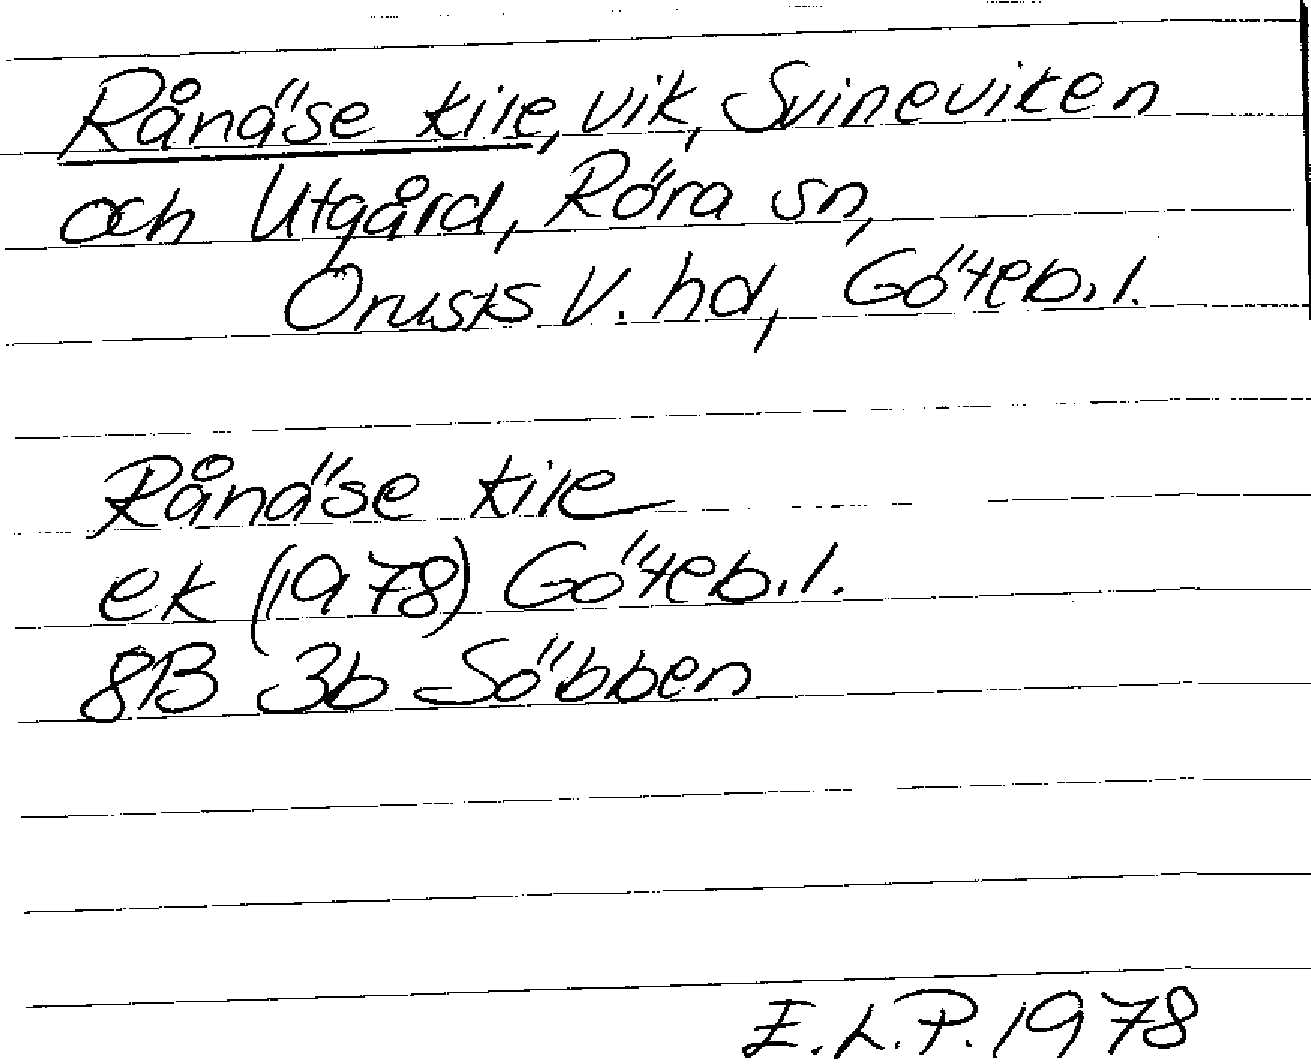 Rånäse kile, vik, Svineviken
och Utgård, Röra sn,
Orusts V. hd, Göteb.l.
Rånäse kile
ek (1978) Göteb.l.
8B 3b Söbben
E.L.P. 1978